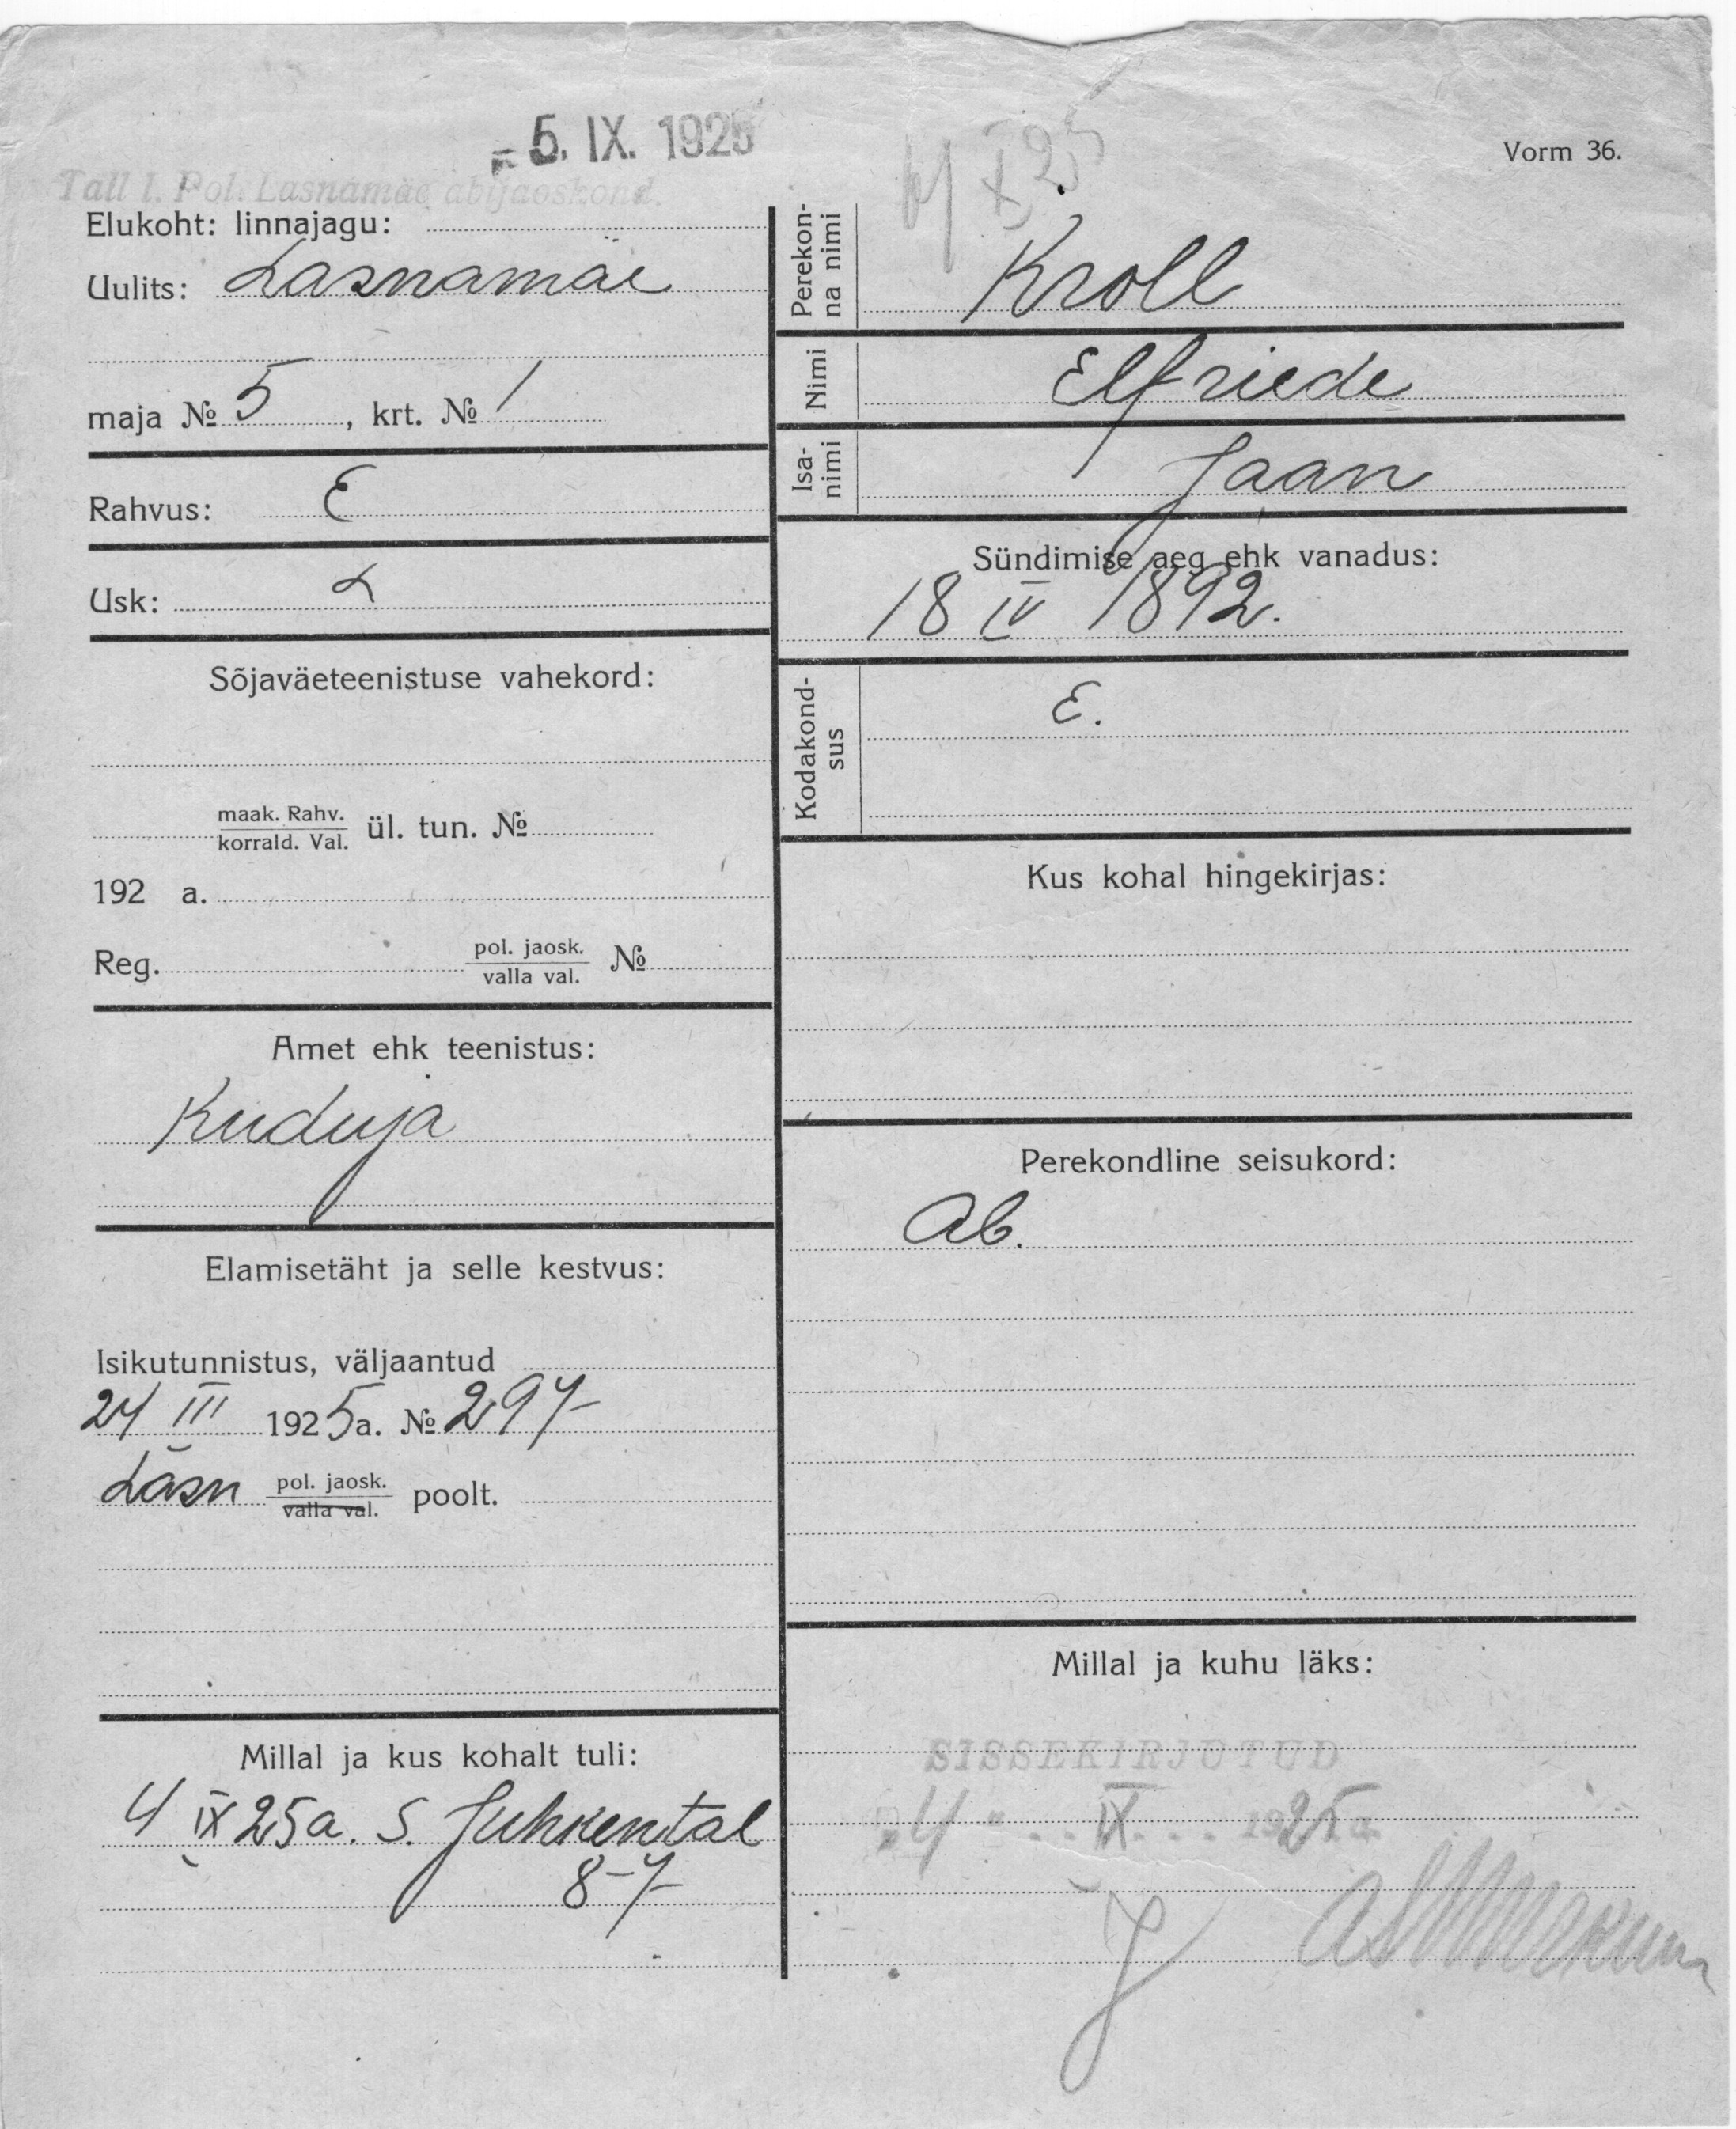 5. IX. 1925
Vorm 36.
Tall I. Pol. Lasnamäe abijaoskond.
Elukoht: linnajagu:
Uulits: Lasnamäe
maja № 5, krt. № 1
Rahvus: E
Usk: L
Sõjaväeteenistuse vahekord:
maak. Rahv.
korrald. Val. ül. tun. №
192 a.
Reg. pol. jaosk.
valla val. №
Amet ehk teenistus:
Kuduja
Elamisetäht ja selle kestvus:
Isikutunnistus, väljaantud
24 III 1925 a. № 297
Lasn pol. jaosk.
valla val. poolt.
Millal ja kus kohalt tuli:
4 IX 25 a. S. Juhkental
8-7
Perekon-
na nimi Kroll
Nimi Elfriede
Isa-
nimi Jaan
Sündimise aeg ehk vanadus:
18 IV 1892.
Kodakond-
sus E.
Kus kohal hingekirjas:
Perekondline seisukord:
Ab.
Millal ja kuhu läks:
SISSEKIRJUTUD
"4" IX 1925 a.